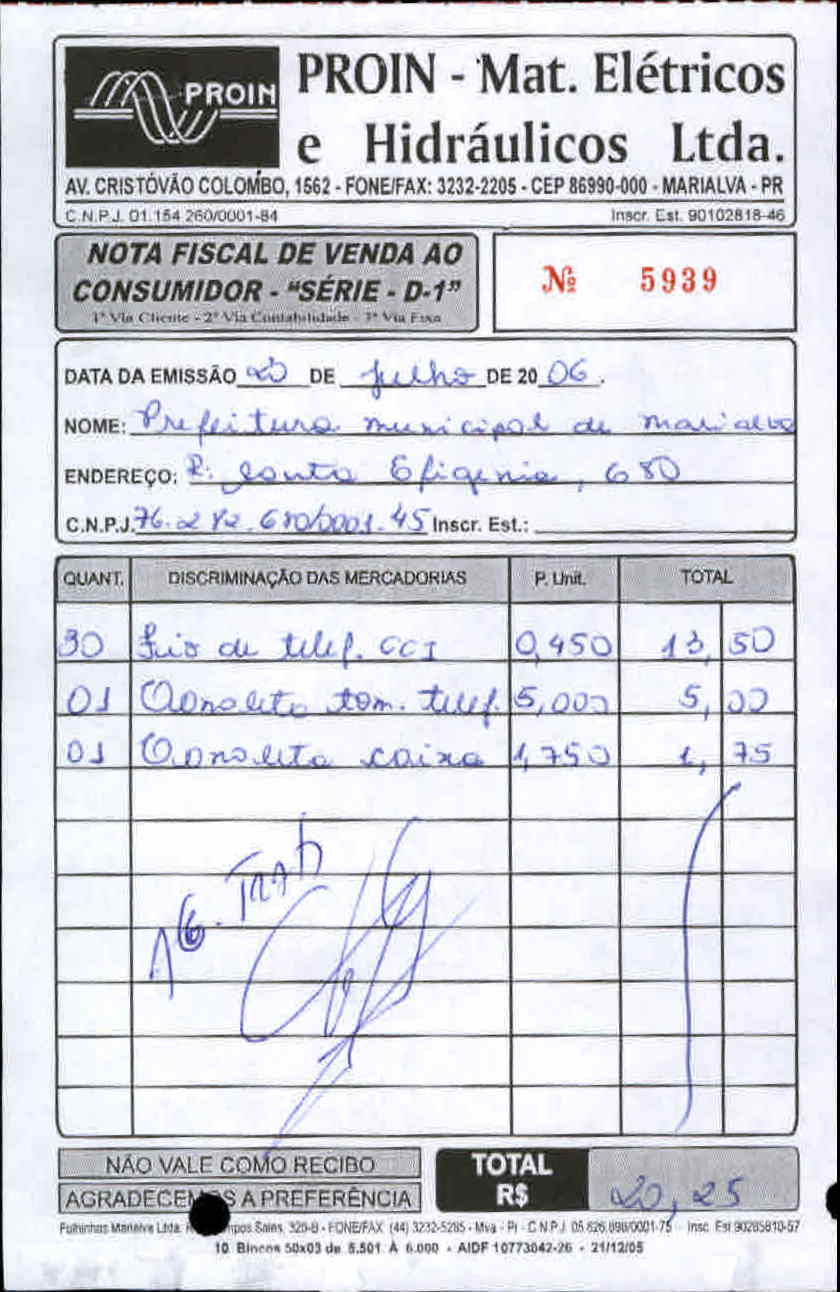 PROIN
PROIN - Mat. Elétricos
e Hidráulicos Ltda.
AV. CRISTÓVÃO COLOMBO, 1562 - FONE/FAX: 3232-2205 - CEP 86990-000 - MARIALVA - PR
C.N.P.J. 01.154.260/0001-84 Inscr. Est. 90102818-46
NOTA FISCAL DE VENDA AO
CONSUMIDOR - "SÉRIE - D-1"
1ª Via Cliente - 2ª Via Contabilidade - 3ª Via Fixa
Nº 5939
DATA DA EMISSÃO 20 DE Julho DE 20 06.
NOME: Prefeitura municipal de marialva
ENDEREÇO: R. Santa Efigenia, 680
C.N.P.J. 76.282.680/0001.45 Inscr. Est.:
QUANT. DISCRIMINAÇÃO DAS MERCADORIAS P. Unit. TOTAL
30 Fio de telef. CCI 0,450 13,50
01 Conolete tom. telef. 5,000 5,00
01 Conoleta caixa 1,750 1,75
NÃO VALE COMO RECIBO
AGRADECEMOS A PREFERÊNCIA
TOTAL
R$ 20,25
Folhinhas Marialva Ltda. Sales, 320-B - FONE/FAX (44) 3232-5285 - Mva - Pr - C.N.P.J. 05.826.898/0001-75 - Insc. Est 90285810-57
10 Blocos 50x03 de 5.501 À 6.000 - AIDF 10773042-26 - 21/12/05